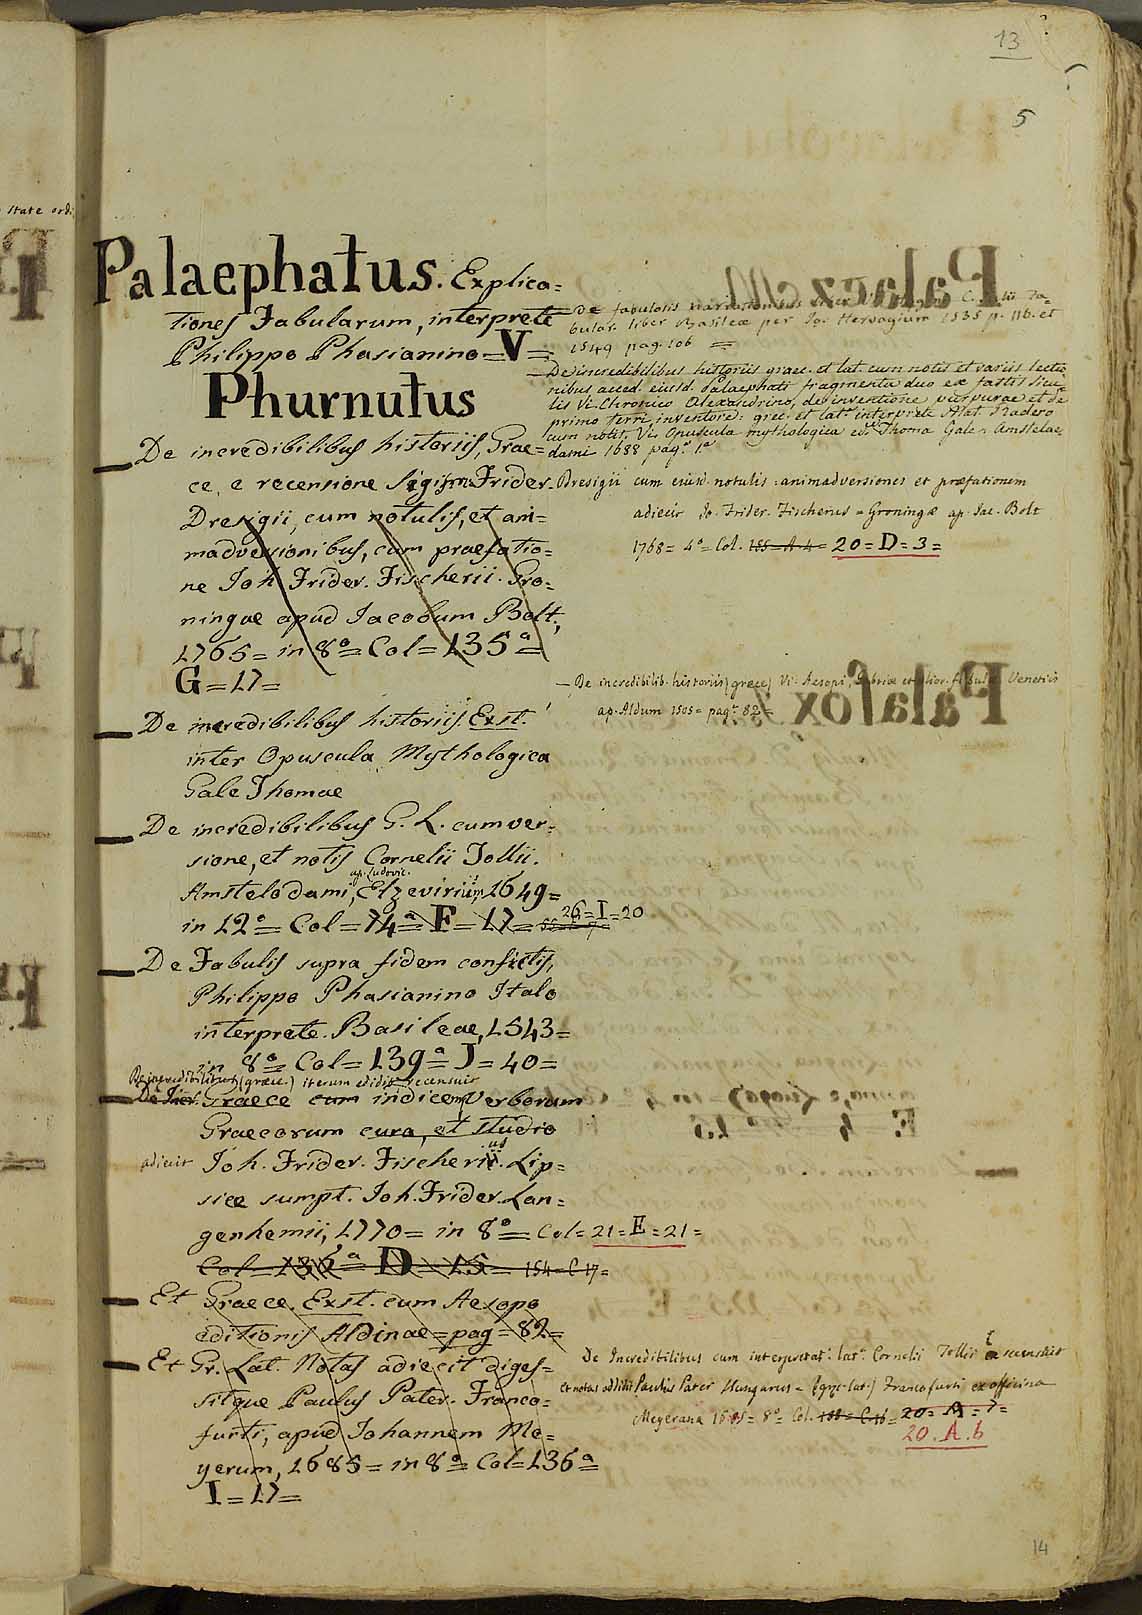 13
5
State ord:
Palaephatus. Explica=
tiones Fabularum, interprete
Philippo Phasianino = V =
Phurnutus
De fabulosis narrationibus
bular. liber Basileæ per Jo. Hervagium 1535 p. 116. et
1549 pag. 106 =
De incredibilibus historiis graec. et lat. cum notis et variis lectio
nibus acced. eiusd. Palaephati fragmenta duo ex fastis Sicu=
lis Vi. Chronico Alexandrino, de inventione purpurae et de
primo ferri inventore. grec. et lat.e interprete Mat. Radero
cum notis. Vi. Opuscula mythologica ed.e Thoma Gale. Amstelae
dami 1688 pag.e 1.a
De incredibilibus historiis, Grae=
ce, e recensione Sigism. Frider.
Dresigii, cum notulis, et ani=
madversionibus, cum praefatio=
ne Joh. Frider. Fischerii. Gro=
ningae apud Jacobum Bolt,
1765 = in 8° = Col = 135a =
G = 17 =
Bresigii cum eiusd. notulis. animadversiones et præfationem
adiecit Jo. Frider. Fischerus = Groningæ ap. Jac. Bolt
1768 = 4° = Col. 155 = A. 4 = 20 = D = 3 =
De incredibilibus historiis. Exst.
inter Opuscula Mythologica
Gale Thomae
De incredibilib. historiis (graece) Vi. Aesopi, Gabriæ et alior. fabulæ Venetiis
ap. Aldum 1505 = pag.e 82 =
De incredibilibus G. L. cum ver=
sione, et notis Cornelii Tollii.
ap. Ludovic.
Amstelodami, Elzevirium, 1649 =
in 12° = Col = 74a = F = 17 = 26 = I = 20
De Fabulis supra fidem confictis,
Philippo Phasianino Italo
interprete. Basileae, 1543 =
in 8° = Col = 139a = J = 40 =
De incredibilibus (græce) iterum edidit recensuit
De Incr. Graece cum indicem Verborum
Graecorum cura, et studio
adiecit Joh. Frider. Fischerius. Lip=
siæ sumpt. Joh. Frider. Lan=
genhemii, 1770 = in 8° = Col = 21 = E = 21 =
Col = 136a = D = 15 = 154 = C 17 =
Et Graece. Exst. cum Aesopo
editionis Aldinae = pag = 82 =
Et Gr. Lat. Notas adiecit diges=
sitque Paulus Pater. Franco=
furti, apud Johannem Me=
yerum, 1685 = in 8° = Col = 136a =
I = 17 =
De Incredibilibus cum interpretat.e lat.e Cornelii Tollii recensuit
et notas addidit Paulus Pater Hungarus = (græ. lat.) Francofurti ex officina
Meyerana 1685 = 8° = Col. 20 = A = 7 =
20. A. 6
14